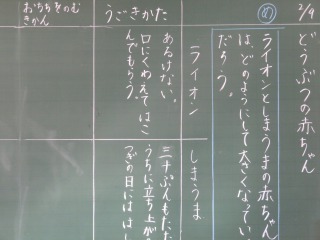 2/9
どうぶつの赤ちゃん
め
ライオンとしまうまの赤ちゃん
は、どのようにして大きくなってい
だろう。
ライオン
しまうま
うごきかた
あるけない。
口にくわえてはこ
んでもらう。
三十ぷんもたた
うちに立ち上が
つぎの日にははし
おちちをのむ
きかん